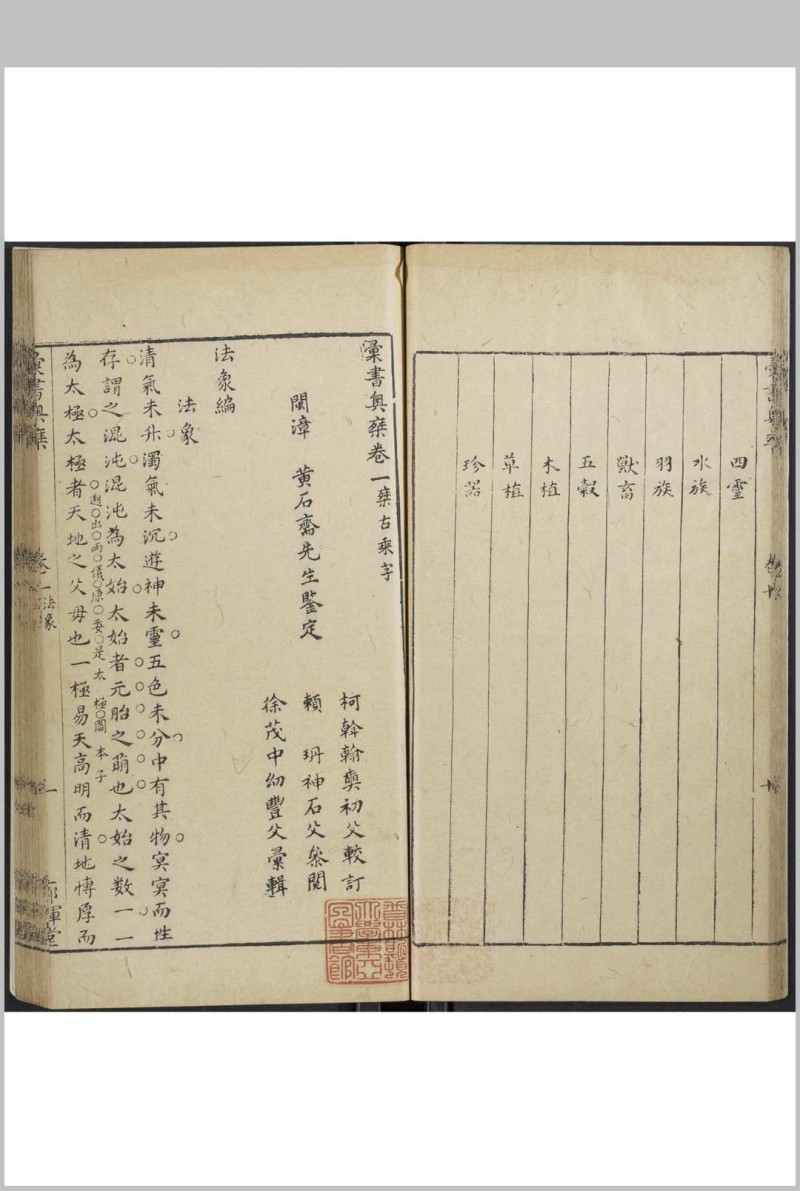 四靈
水族
羽族
獸畜
五穀
木植
草植
珍器
彙書奧乘卷一 乘古乘字
閩漳 黃石齋先生鑒定
柯㪺翰奭初父較訂
賴玬神石父叅閱
徐茂中幼豐父彙輯
法象編
法象
清氣未升濁氣未沉遊神未靈五色未分中有其物㝠㝠而性
存謂之混沌混沌為太始太始者元胎之萌也太始之数一一
遡出兩儀源委是太極圖本子
為太極太極者天地之父母也一極易天高明而清地愽厚而
彙書奧乘
卷一
法象
一